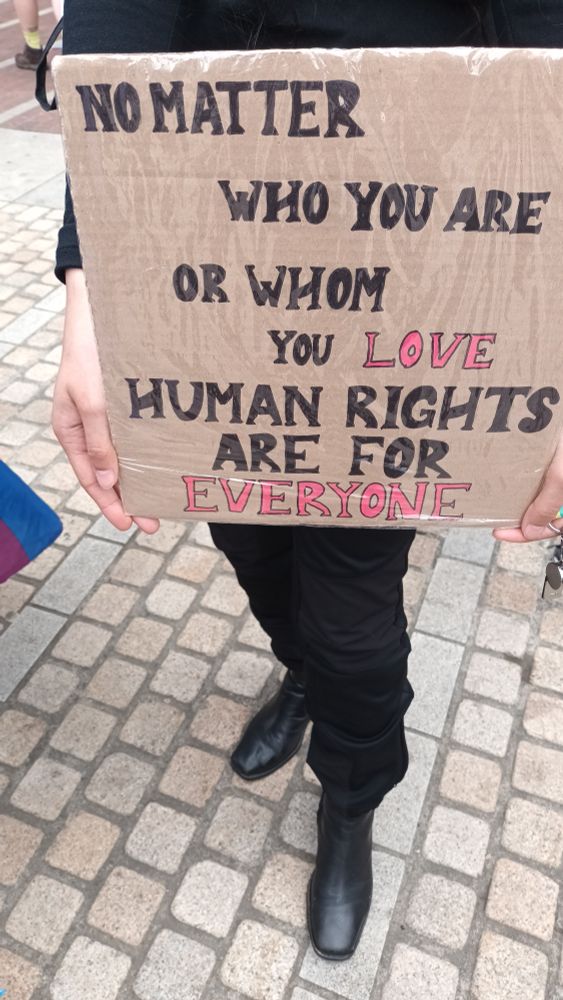 NO MATTER
WHO YOU ARE
OR WHOM
YOU LOVE
HUMAN RIGHTS
ARE FOR
EVERYONE